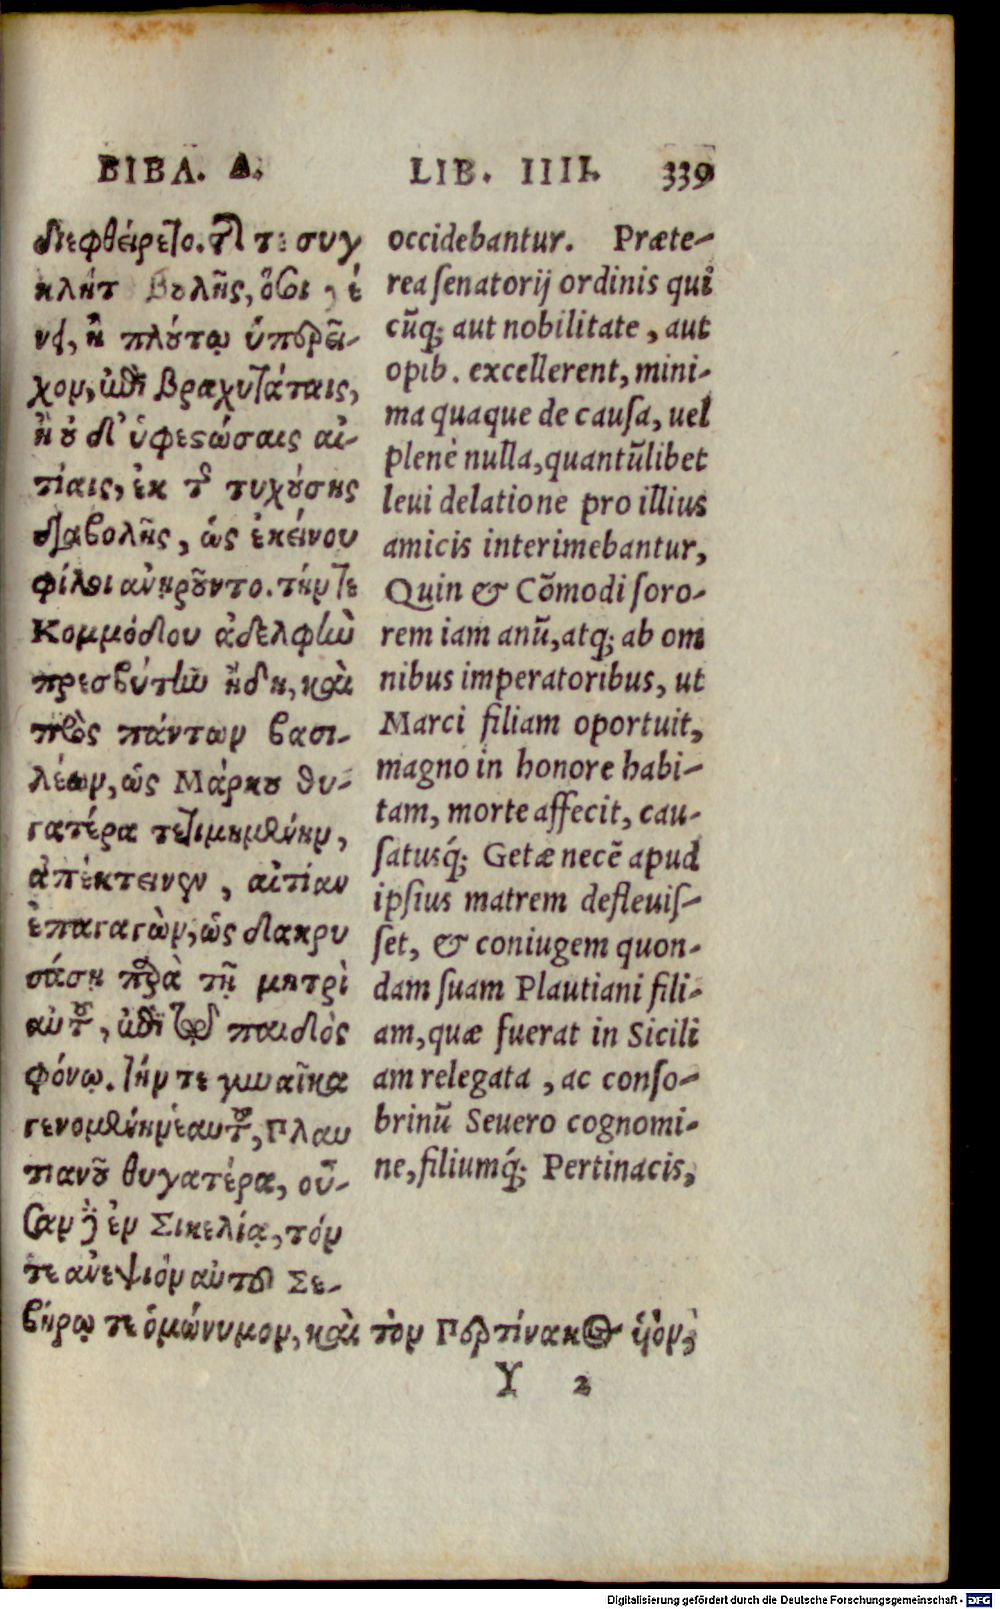 ΒΙΒΛ. Δ.
διεφθείρετο. τῆς τε συγ
κλήτου βουλῆς, ὅσοι γέ
νει, ἢ πλούτῳ ὑπερεῖ-
χον, ἐπὶ βραχυτάταις,
ἢ οὐδ' ὑφεστώσαις αἰ-
τίαις, ἐκ τῆς τυχούσης
διαβολῆς, ὡς ἐκείνου
φίλοι ἀνῃροῦντο. τήν τε
Κομμόδου ἀδελφὴν
πρεσβύτιν ἤδη, καὶ
πρὸς πάντων βασι-
λέων, ὡς Μάρκου θυ-
γατέρα τετιμημένην,
ἀπέκτεινεν, αἰτίαν
ἐπαγαγὼν, ὡς δακρυ
σάσῃ παρὰ τῇ μητρὶ
αὐτοῦ, ἐπὶ τῷ τοῦ παιδὸς
φόνῳ. τήν τε γυναῖκα
γενομένην ἑαυτοῦ, Πλαυ
τιανοῦ θυγατέρα, οὖ-
σαν δὲ ἐν Σικελίᾳ, τόν
τε ἀνεψιὸν αὐτοῦ Σε-
βήρῳ τε ὁμώνυμον, καὶ τὸν Περτίνακος υἱὸν,
LIB. IIII. 339
occidebantur. Præte-
rea senatorij ordinis qui
cũq; aut nobilitate, aut
opib. excellerent, mini-
ma quaque de causa, uel
plenè nulla, quantũlibet
leui delatione pro illius
amicis interimebantur,
Quin & Cõmodi soro-
rem iam anũ, atq; ab om
nibus imperatoribus, ut
Marci filiam oportuit,
magno in honore habi-
tam, morte affecit, cau-
satusq́; Getæ necẽ apud
ipsius matrem defleuis-
set, & coniugem quon-
dam suam Plautiani fili-
am, quæ fuerat in Sicili
am relegata, ac conso-
brinũ Seuero cognomi-
ne, filiumq́; Pertinacis,
Y 2
Digitalisierung gefördert durch die Deutsche Forschungsgemeinschaft - DFG